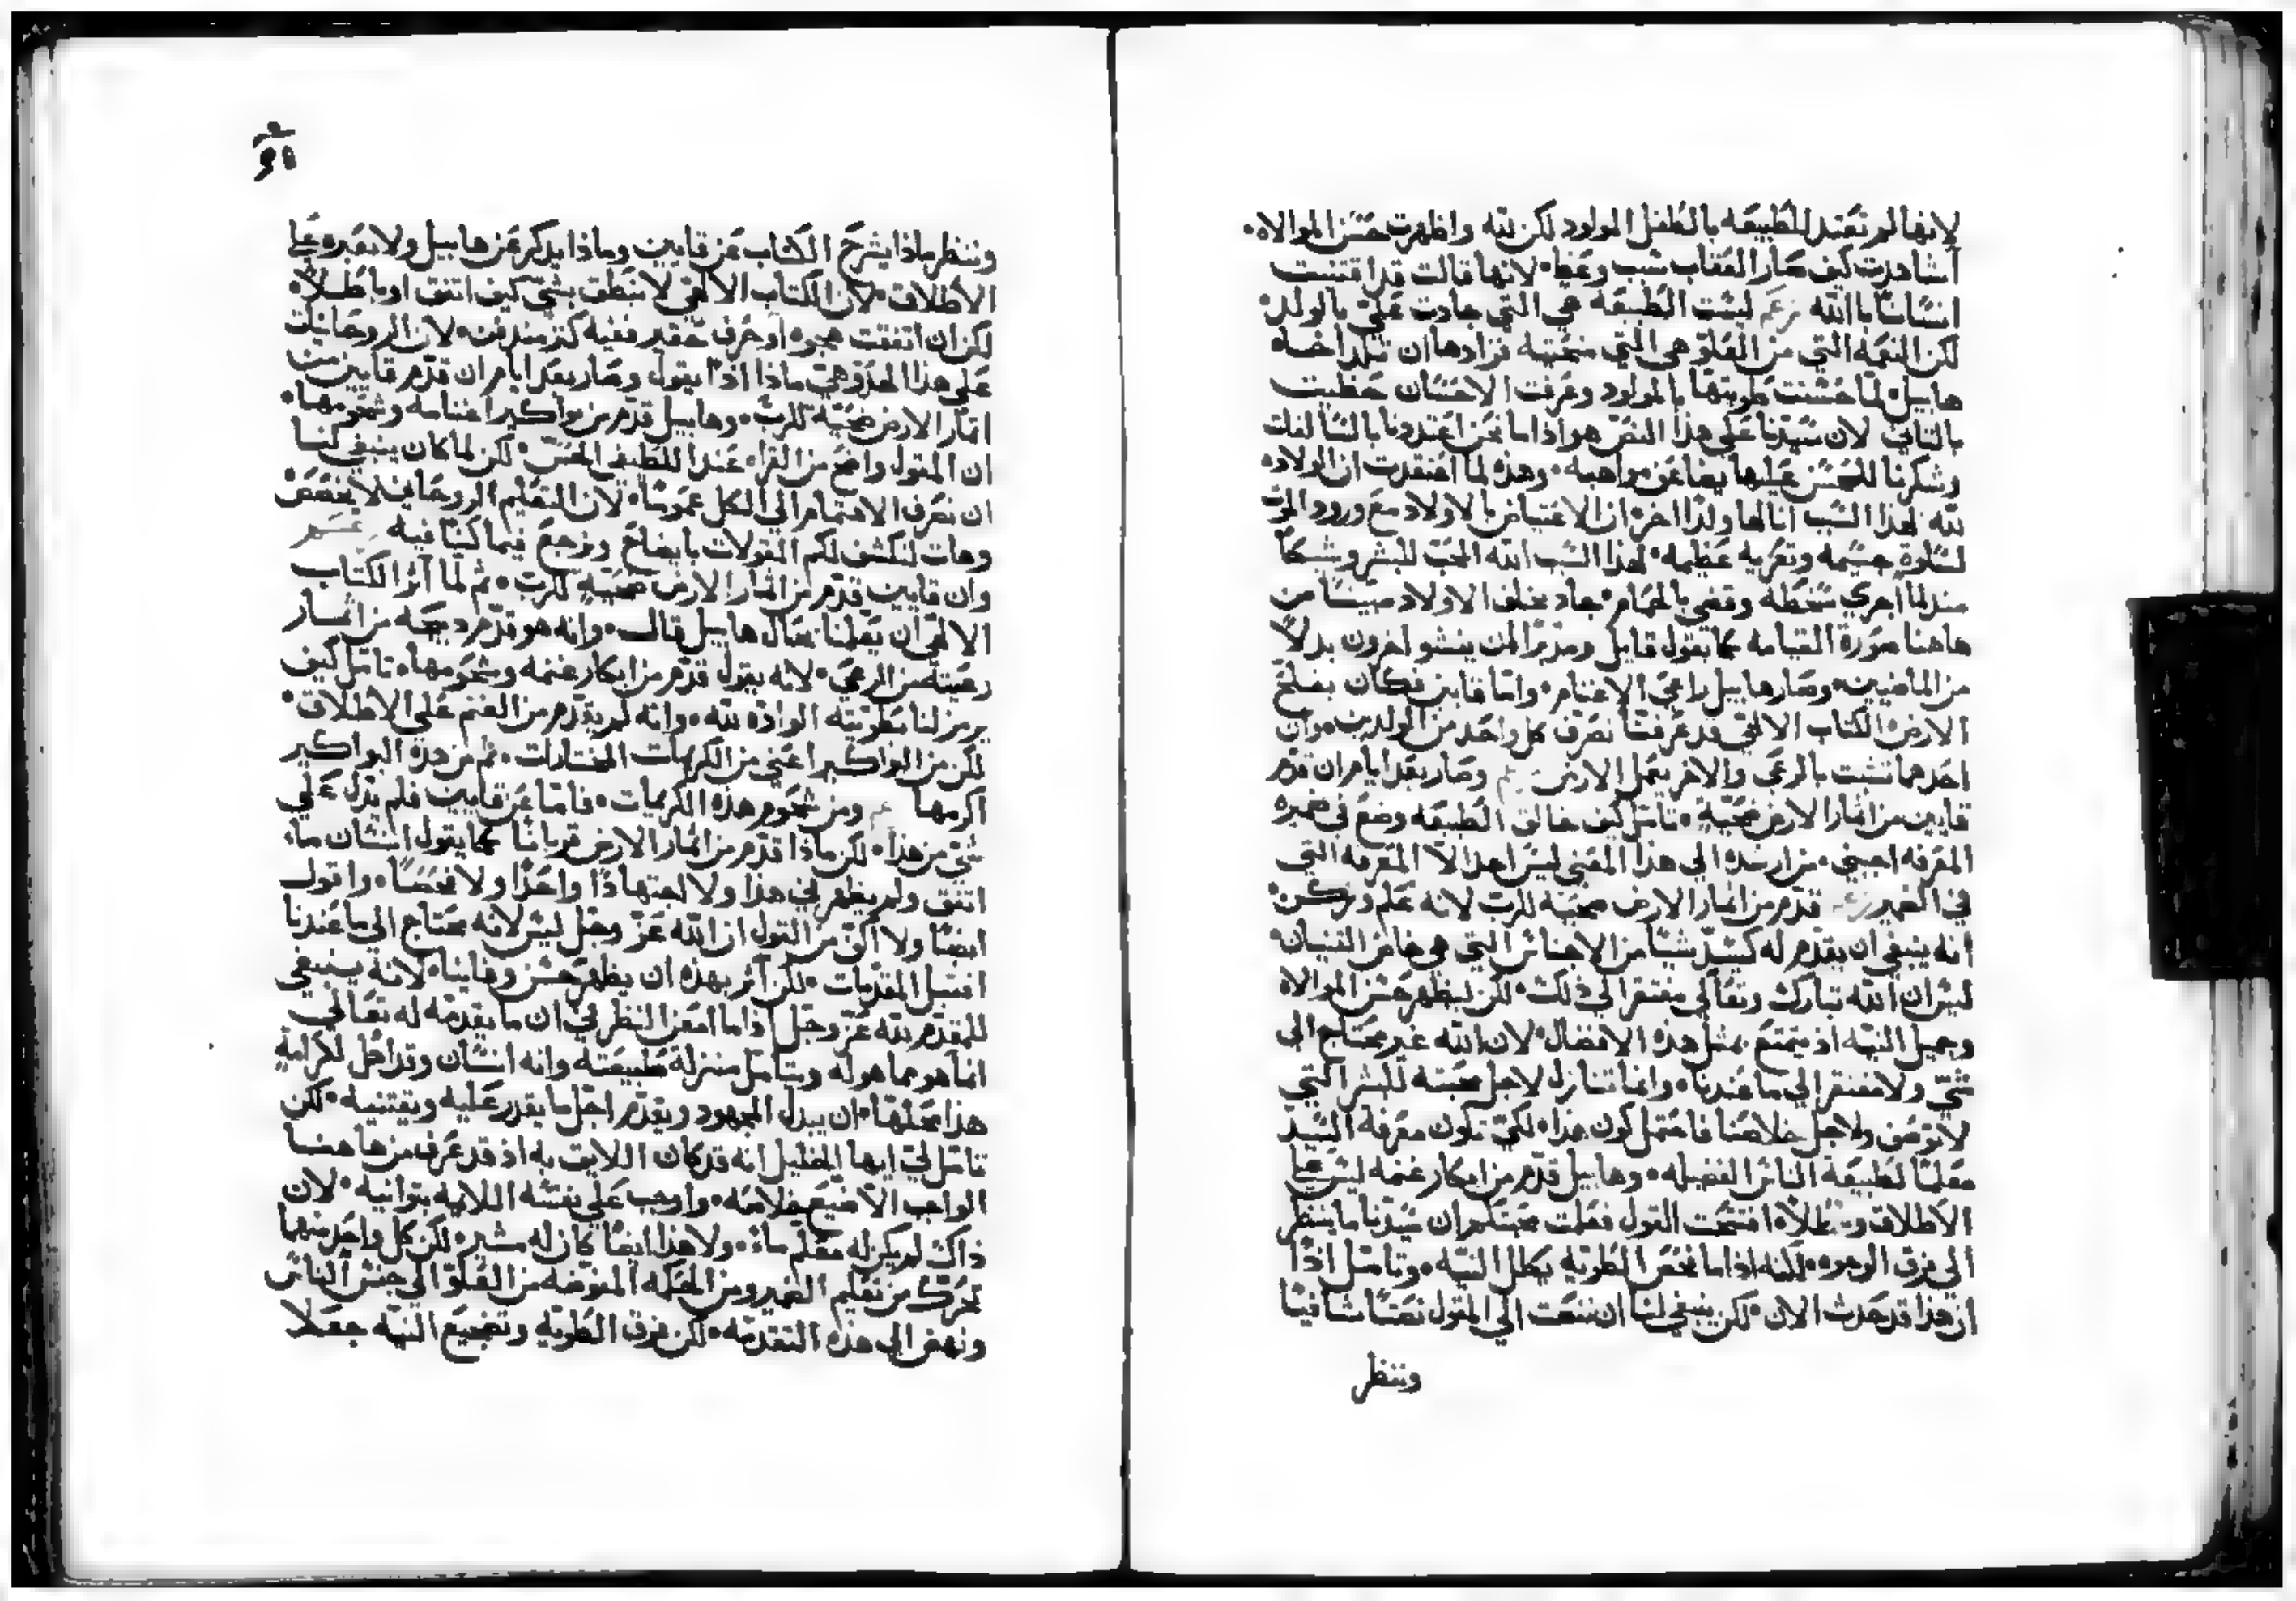 لانها لم تعتد للطبيعه بالطفل المولود لكن لله واظهرت حسن الموالاه.
أشاهدت كيف صار العقاب سبب وعظ. لانها قالت قد اقتنيت
انسانا بالله زعم ليست الطبيعه هي التي جادت علي بالولد.
لكن النعمه التي من العلو هي التي منحتنيه فزادها ان تلد اخاه
هابيل. لما حسنت طويتها بالمولود وعرفت الاحسان حظيت
بالثاني لان سيدنا على هذا النص هو اذا ما نحن اعتددنا بالسالفات
وشكرنا للمحسن عليها يضاعف مواهبه. وهذه لما اعتقدت ان الولاده
لله لهذا السبب انالها ولدا اخر. ان الاعتياض بالاولاد مع ورود الموت
لسلوة جسيمه وتعزيه عظيمه. لهذا السبب الله المحب للبشر وشيكا
منذ لما اجري سخطه وقضي بالحمام. جاد بخلف الاولاد مبينا من
هاهنا صورة القيامه كما يقول قايل ومرمزا لمن ينشو اخرون بدلا
من الماضيين. وصار هابيل راعي الاغنام. واما قاين فكان يفلح
الارض. الكتاب الالهي قد عرفنا تصرف كل واحد من الولدين. وان
احدهما تشبت بالرعي والاخر بعمل الارض وصار بعد ايام ان قدم
قايين من اثمار الارض ضحية. تامل كيف خالق الطبيعه وضع في ضميره
المعرفه اجبني. من ارشده الي هذا المعني ليس احدا الا المعرفه التي
في الضمير زعم قدم من اثمار الارض ضحيه للرب لانه علم وركن
انه ينبغي ان يقدم له كسيد شيا من الاجناس التي هي خاص القنيان.
ليس ان الله تبارك وتعالي مفتقرا الي ذلك. لكن ليظهر حسن الموالاه
وجميل النيه اذ يتمتع بمثل هذه الافضال. لان الله غير محتاج الي
شي ولا مفتقر الي ما عندنا. وانما تنازل لاجل محبته للبشر التي
لا توصف ولاجل خلاصنا فاحتمل كون هذا. لكي تكون معرفة السيد
معلما لطبيعة الناس الفضيله. وهابيل قدم من ابكار غنمه ليس علي
الاطلاق وبطلاه افتتحت القول فعلت محبتكم ان سيدنا ما ينظر
الي فرق الوجوه. لكنه اذا ما فحص الطويه يكلل النيه. وتامل اذا
ان هذا قد حدث الان. لكن ينبغي لنا ان ننعت الي المقول نصتا شافيا
وننظر
وننظر ماذا يشرح الكتاب عن قايين وماذا يذكر عن هابيل ولا نعبره علي
الاطلاق. لان الكتاب الالهي لا ينطق بشي كيف اتفق او باطلاه
لكن ان اتفقت هجوه او حرف حقير ففيه كنز مندفن. لان الروحانيات
علي هذا الحذو هي ماذا اذا يقول وصار بعد ايام ان قدم قايين من
اثمار الارض ضحية للرب. وهابيل قدم من بواكير اغنامه وشحومها.
ان المقول واضح من القراه عند اللطيفي الحس. لكن لما كان ينبغي لنا
ان نصرف الاهتمام الي الكل عموما. لان التعليم الروحاني لا يخصص
وهات لنكشف لكم المقولات بايضاح ونرجع فيما كنا فيه
وان قايين قدم من اثمار الارض ضحية للرب. ثم لما آثر الكتاب
الالهي ان يعلمنا بحال هابيل قالت. وانه هو قدم دبيحه من اثمار
رعيته من الرعي. لانه يقول قدم من ابكار غنمه وشحومها. تامل كيف
يرمز لنا بطويته الوادة لله. وانه لم يقدم من الغنم علي الاطلاق.
لكن من البواكير اعني من الكريمات المختارات. ثم من هذه البواكير
اكرمها ومن شحوم هذه الكريمات. فاما عن قايين فلم يدل علي
شي من هذا. لكن ماذا قدم من اثمار الارض قربانا كما يقول انسان ما.
اتفق ولم يظهر لي هذا ولا اجتهادا واحدا ولا فحصا. واقول
ايضا ولا اكف من القول ان الله عز وجل ليس لانه محتاج الي ما عندنا
اقتبل المقدمات. لكن آثر بهذه ان يظهر حسن وفائنا. لانه ينبغي
للمقدم لله عز وجل اذا ما امعن النظر في ان ما يقدمه له تعالي
انما هو مما هو له ويتامل منزلة طبيعته وانه انسان وقد اهل لكرامة
هذا محلها. ان يبدل المجهود ويقدم اجل ما يقدر عليه ويقتنيه. لكن
تامل لي ايها الخليل انه قد كان اللايق به اذ قد عرف من هاهنا
الواجب الا ضيع خلاصه. واوجب علي نفسه اللايه بتوانيه. لان
ذاك لم يكن له معلم ما. ولا هذا ايضا كان له مشير. لكن كل واحد منهما
تحرك من تعليم الضمير ومن الحكمه المفوضه من العلو الي جنس الناس
ونهض الي هذه التقدمه. لكن فرق الطويه وتضجيع النيه جعلا